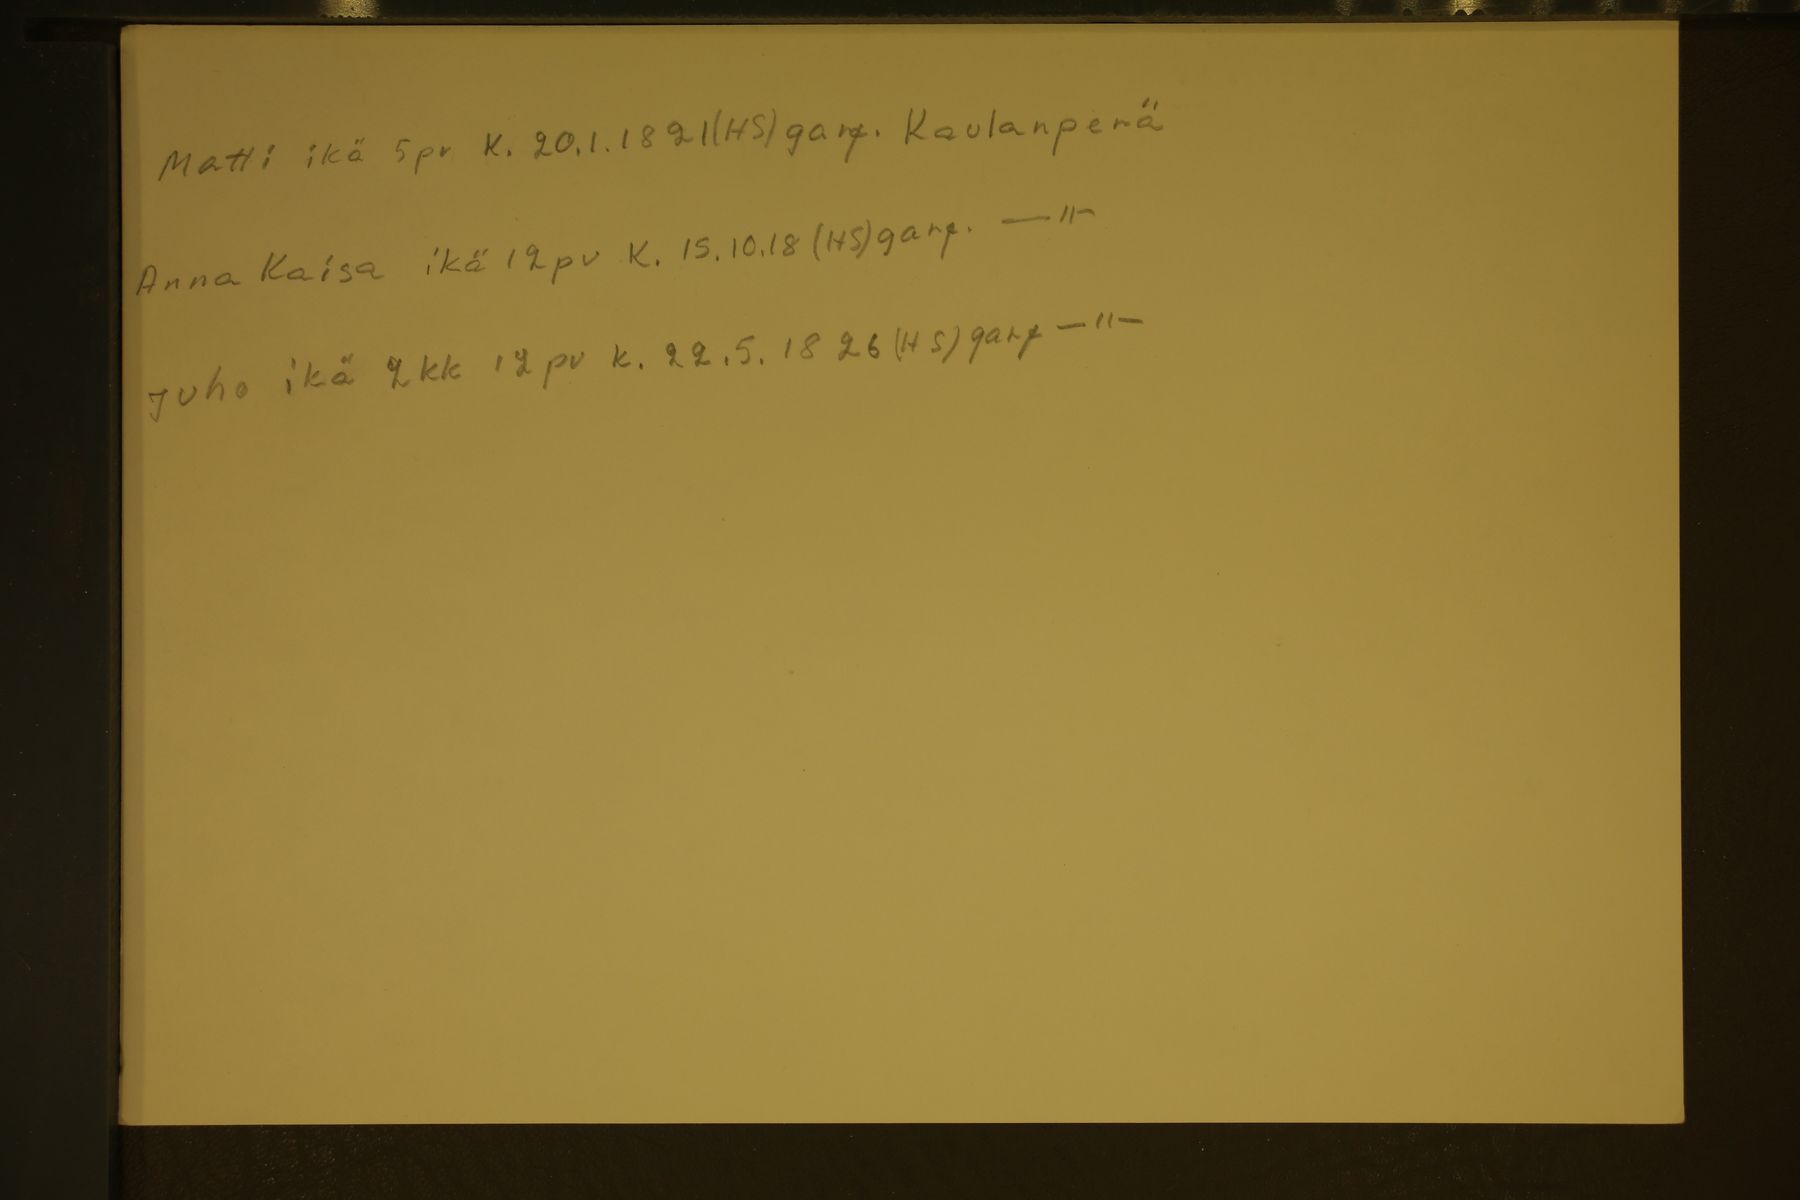 Matti ikä 5pv K. 20.1.1821(HS) garf. Kaulanperä
Anna Kaisa ikä 12pv K. 15.10.18 (HS) garf. —"—
Juho ikä 2kk 12pv k. 22.5.1826 (HS) garf —"—